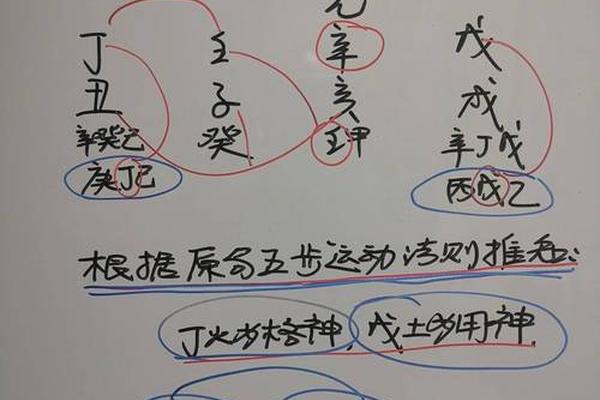 元
丁 壬 辛 戊
丑 子 亥 戌
辛癸己 癸 壬甲 辛丁戊
庚丁己 丙戊乙
根据原局五步运动法则推看:
丁火为格神、戊土为用神